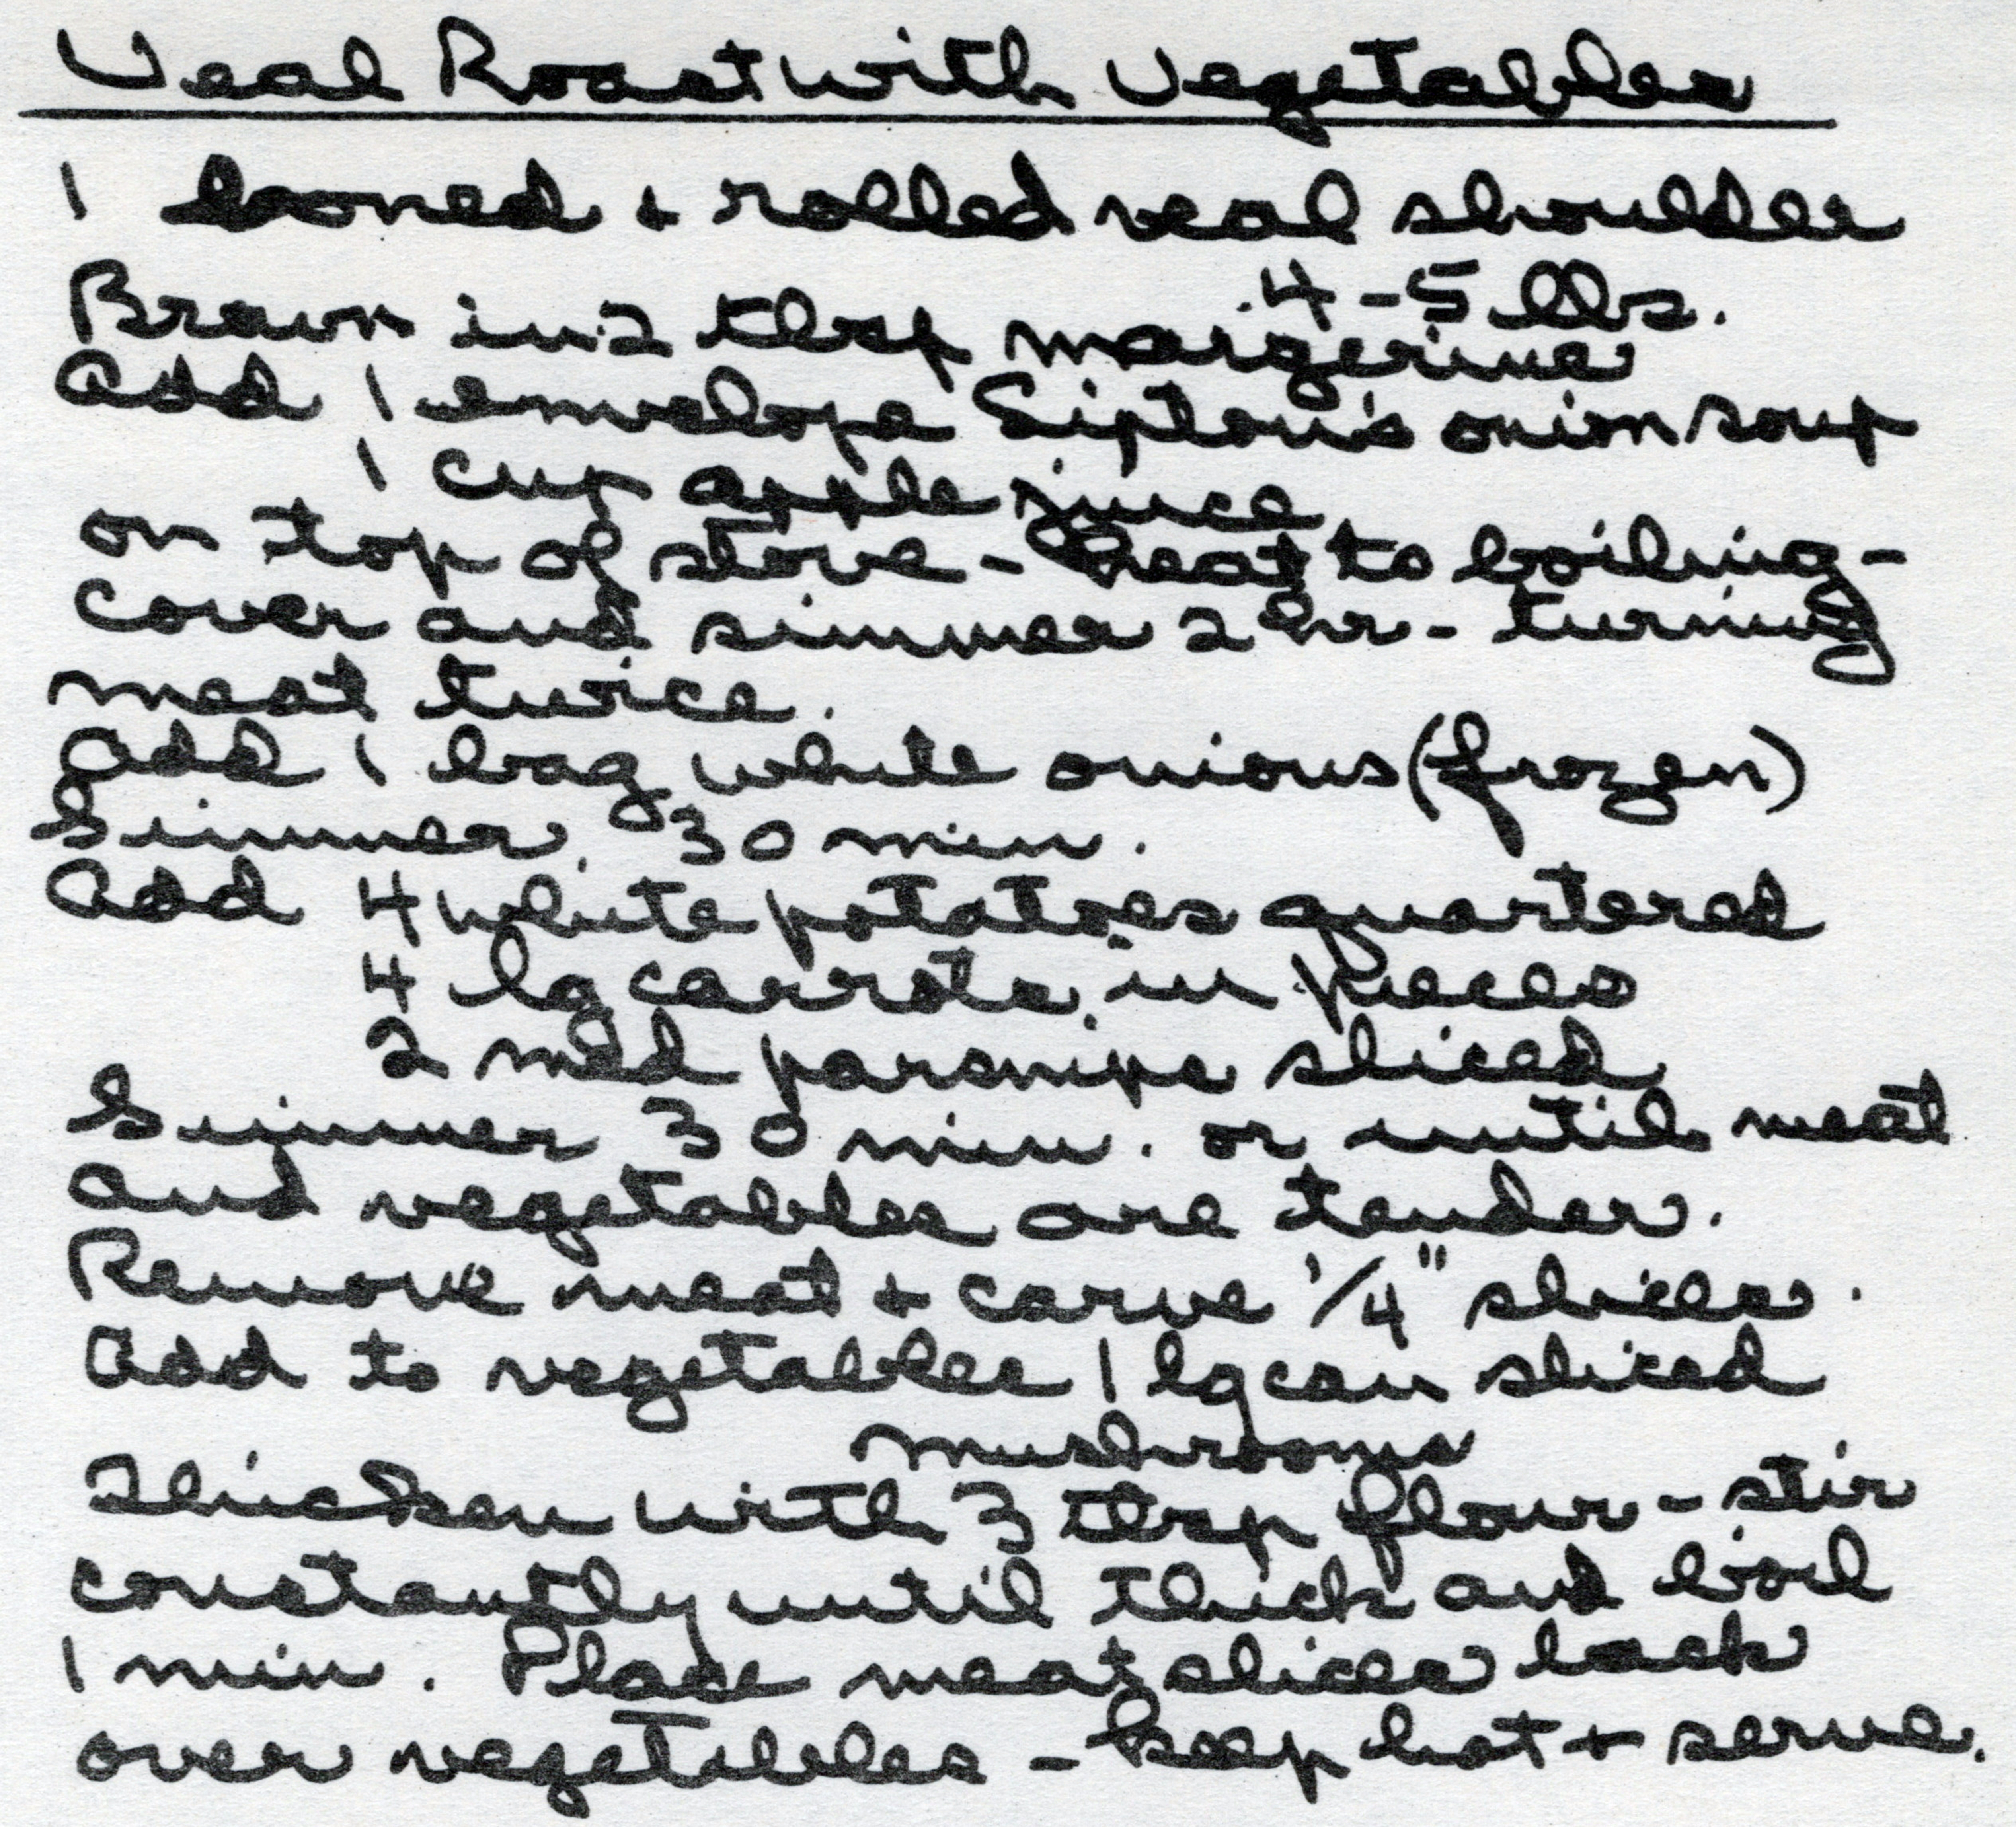 Veal Roast with Vegetables
1 boned + rolled veal shoulder
4-5 lbs.
Brown in 2 tbsp margerine
Add 1 envelope Lipton's onion soup
1 cup apple juice
on top of stove - heat to boiling -
cover and simmer 2 hr - turning
meat twice.
Add 1 bag white onions (frozen)
Simmer 30 min.
Add 4 white potatoes quartered
4 lg carrots in pieces
2 med parsnips sliced
Simmer 30 min. or until meat
and vegetables are tender.
Remove meat + carve 1/4" slices.
Add to vegetables 1 lg can sliced
mushrooms
Thicken with 3 tbsp flour - stir
constantly until thick and boil
1 min. Place meat slices back
over vegetables - keep hot + serve.